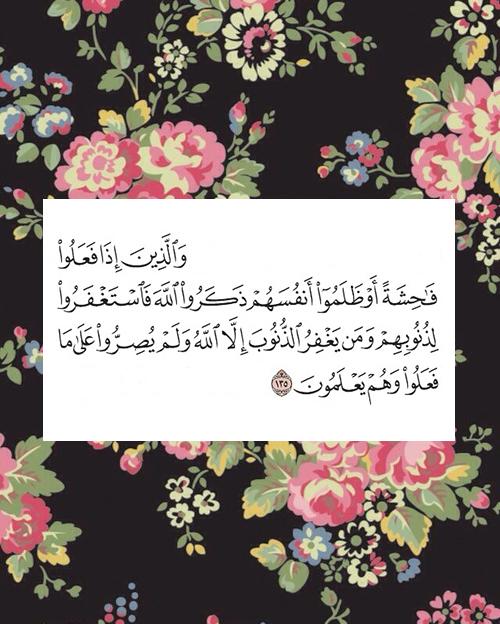 وَٱلَّذِينَ إِذَا فَعَلُوا۟
فَٰحِشَةً أَوْ ظَلَمُوٓا۟ أَنفُسَهُمْ ذَكَرُوا۟ ٱللَّهَ فَٱسْتَغْفَرُوا۟
لِذُنُوبِهِمْ وَمَن يَغْفِرُ ٱلذُّنُوبَ إِلَّا ٱللَّهُ وَلَمْ يُصِرُّوا۟ عَلَىٰ مَا
فَعَلُوا۟ وَهُمْ يَعْلَمُونَ ١٣٥